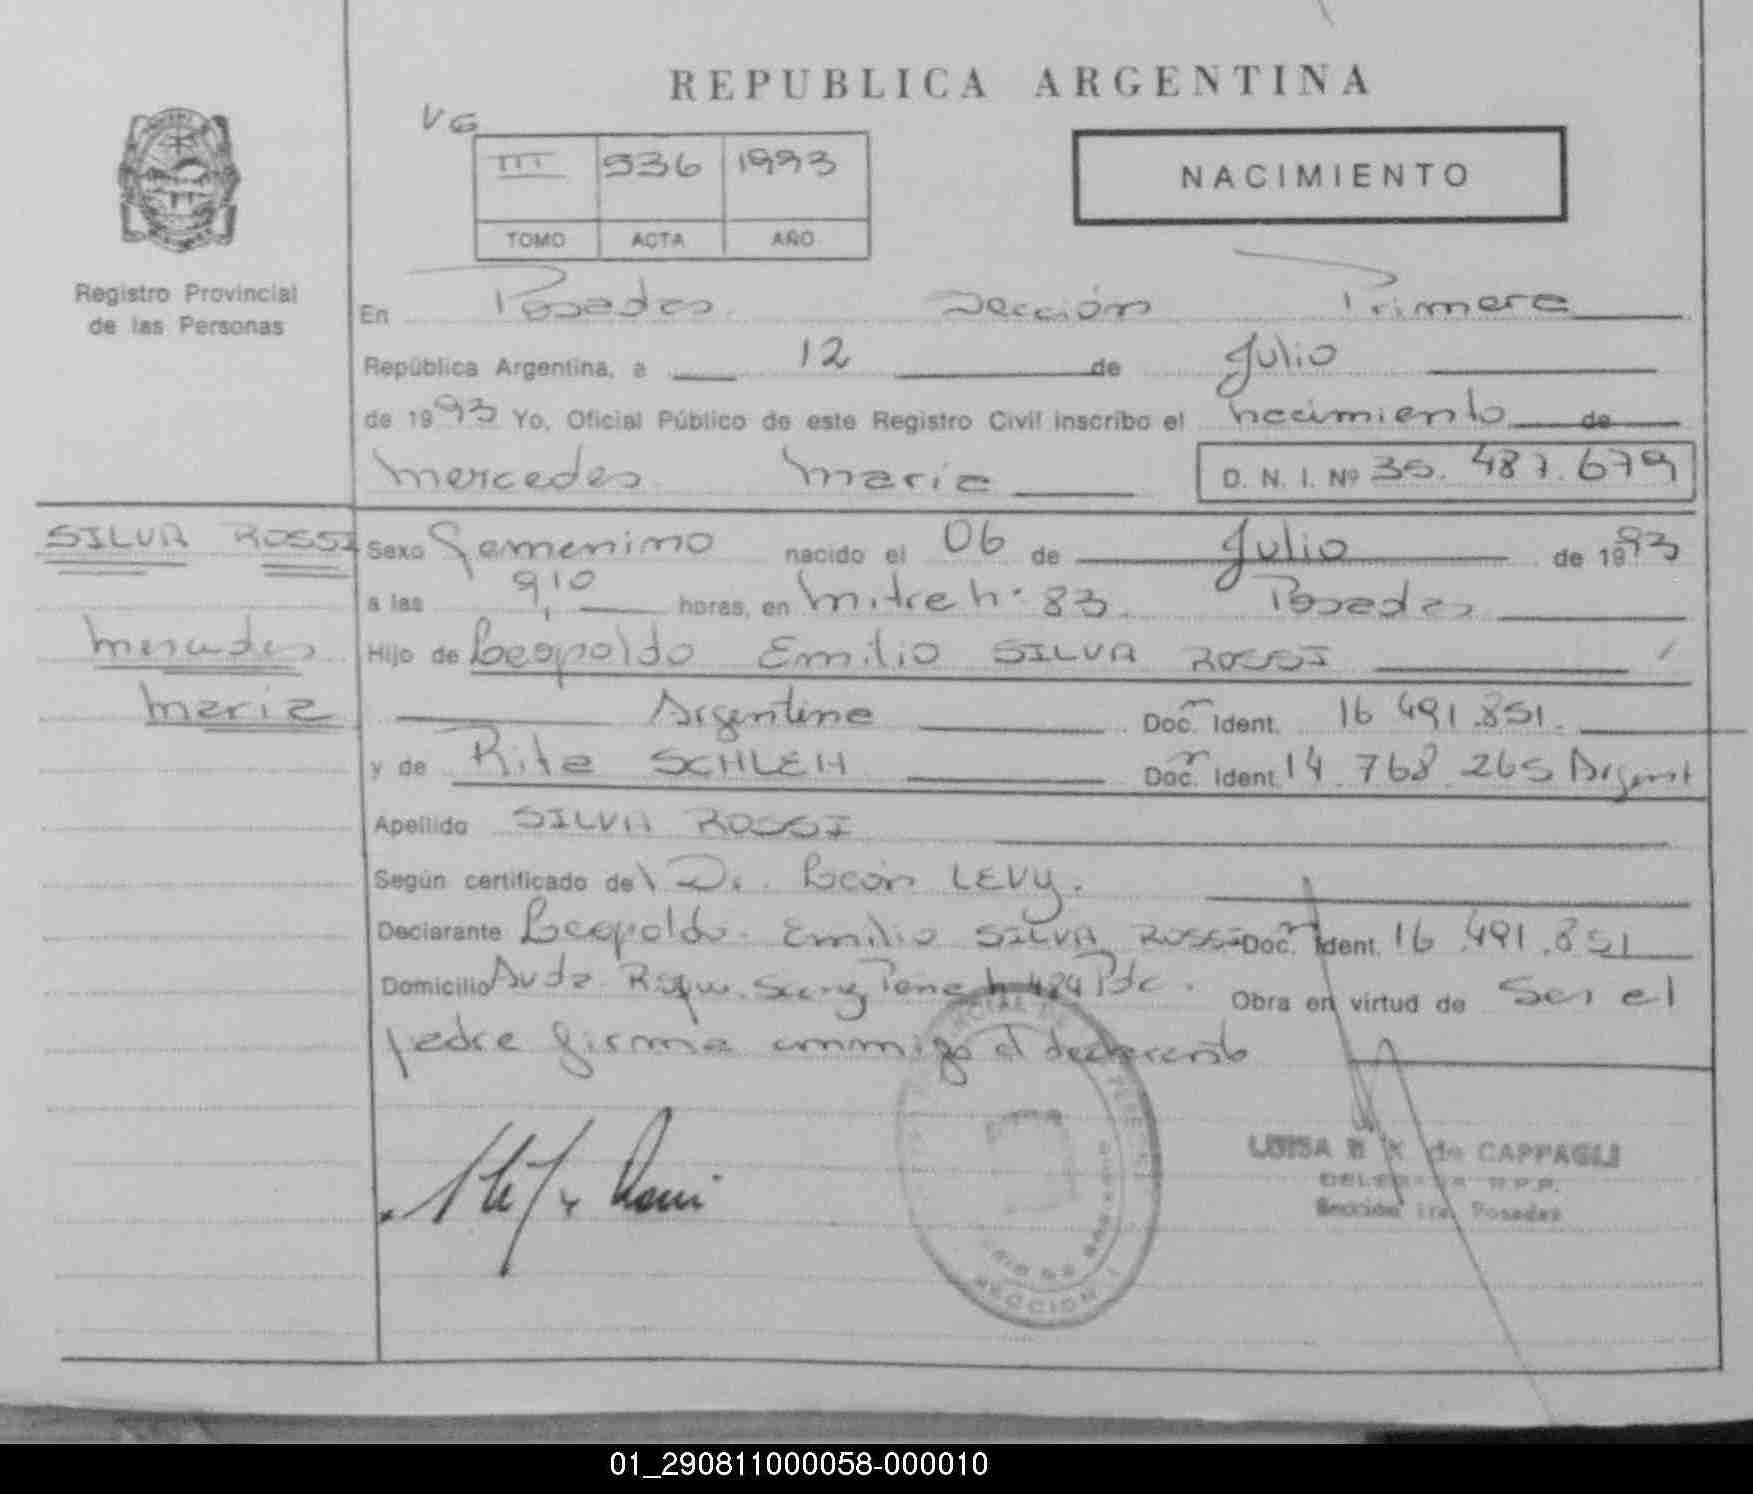 REPUBLICA ARGENTINA
VG
III 936 1993
TOMO ACTA AÑO
NACIMIENTO
Registro Provincial
de las Personas
En Posadas Sección Primera
República Argentina, a 12 de Julio
de 1993 Yo, Oficial Público de este Registro Civil inscribo el nacimiento de
Mercedes Maria D. N. I. Nº 35. 487. 679
SILVA ROSSI
Mercedes
Maria
Sexo Femenino nacido el 06 de Julio de 1993
a las 9,10 horas, en Mitre nº 83. Posadas
Hijo de Leopoldo Emilio SILVA ROSSI
Argentina Doc. Ident. 16 491.851.
y de Rita SCHLEH Doc. Ident. 14 768 265 Argent
Apellido SILVA ROSSI
Según certificado del Dr. León LEVY.
Declarante Leopoldo Emilio SILVA ROSSI Doc. Ident. 16 491.851
Domicilio Avda. Roque Saenz Pena nº 424 Pdas. Obra en virtud de Ser el
padre firma conmigo el declarante
LUISA B de CAPPAGLI
DELEGADA R.P.P.
Sección 1ra. Posadas
SECCION 1
01_290811000058-000010